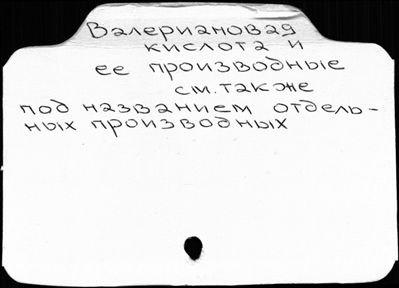 Валериановая
кислота и
ее производные
см. также
под названием отдель-
ных производных